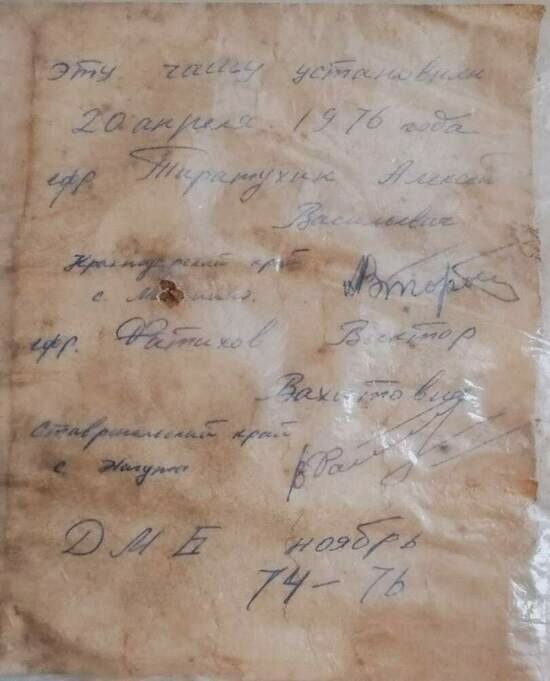 эту чашу установили
20 апреля 1976 года
ефр. Алексей
Васильевич
Краснодарский край
с.
ефр. Фатихов Виктор
Вахитович
Ставропольский край
с.
ДМБ ноябрь
74-76